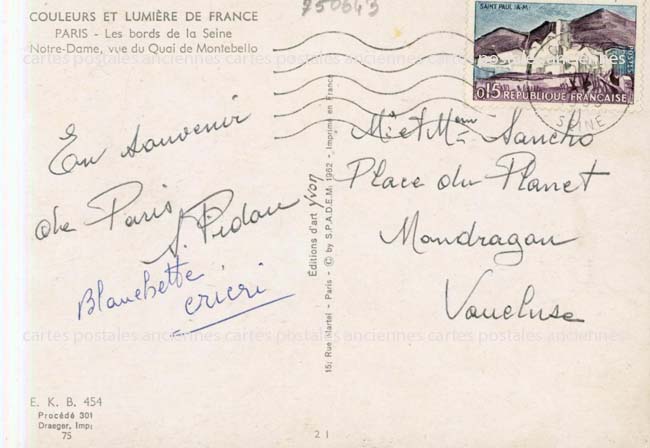 COULEURS ET LUMIÈRE DE FRANCE
PARIS - Les bords de la Seine
Notre-Dame, vue du Quai de Montebello
750643
SAINT PAUL (A-M)
POSTES
0,15 RÉPUBLIQUE FRANÇAISE
SEINE
En souvenir
de Paris
S. Pidou
Blanchette
cricri
Editions d'art yvon
15, Rue Martel - Paris - © by S.P.A.D.E.M. 1962 - Imprimé en France
M. et Mme Sancho
Place du Planet
Mondragon
Vaucluse
cartes postales anciennes cartes postales anciennes cartes postales anciennes
cartes postales anciennes cartes postales anciennes cartes postales anciennes
E. K. B. 454
Procédé 301
Draeger, Imp:
75
21